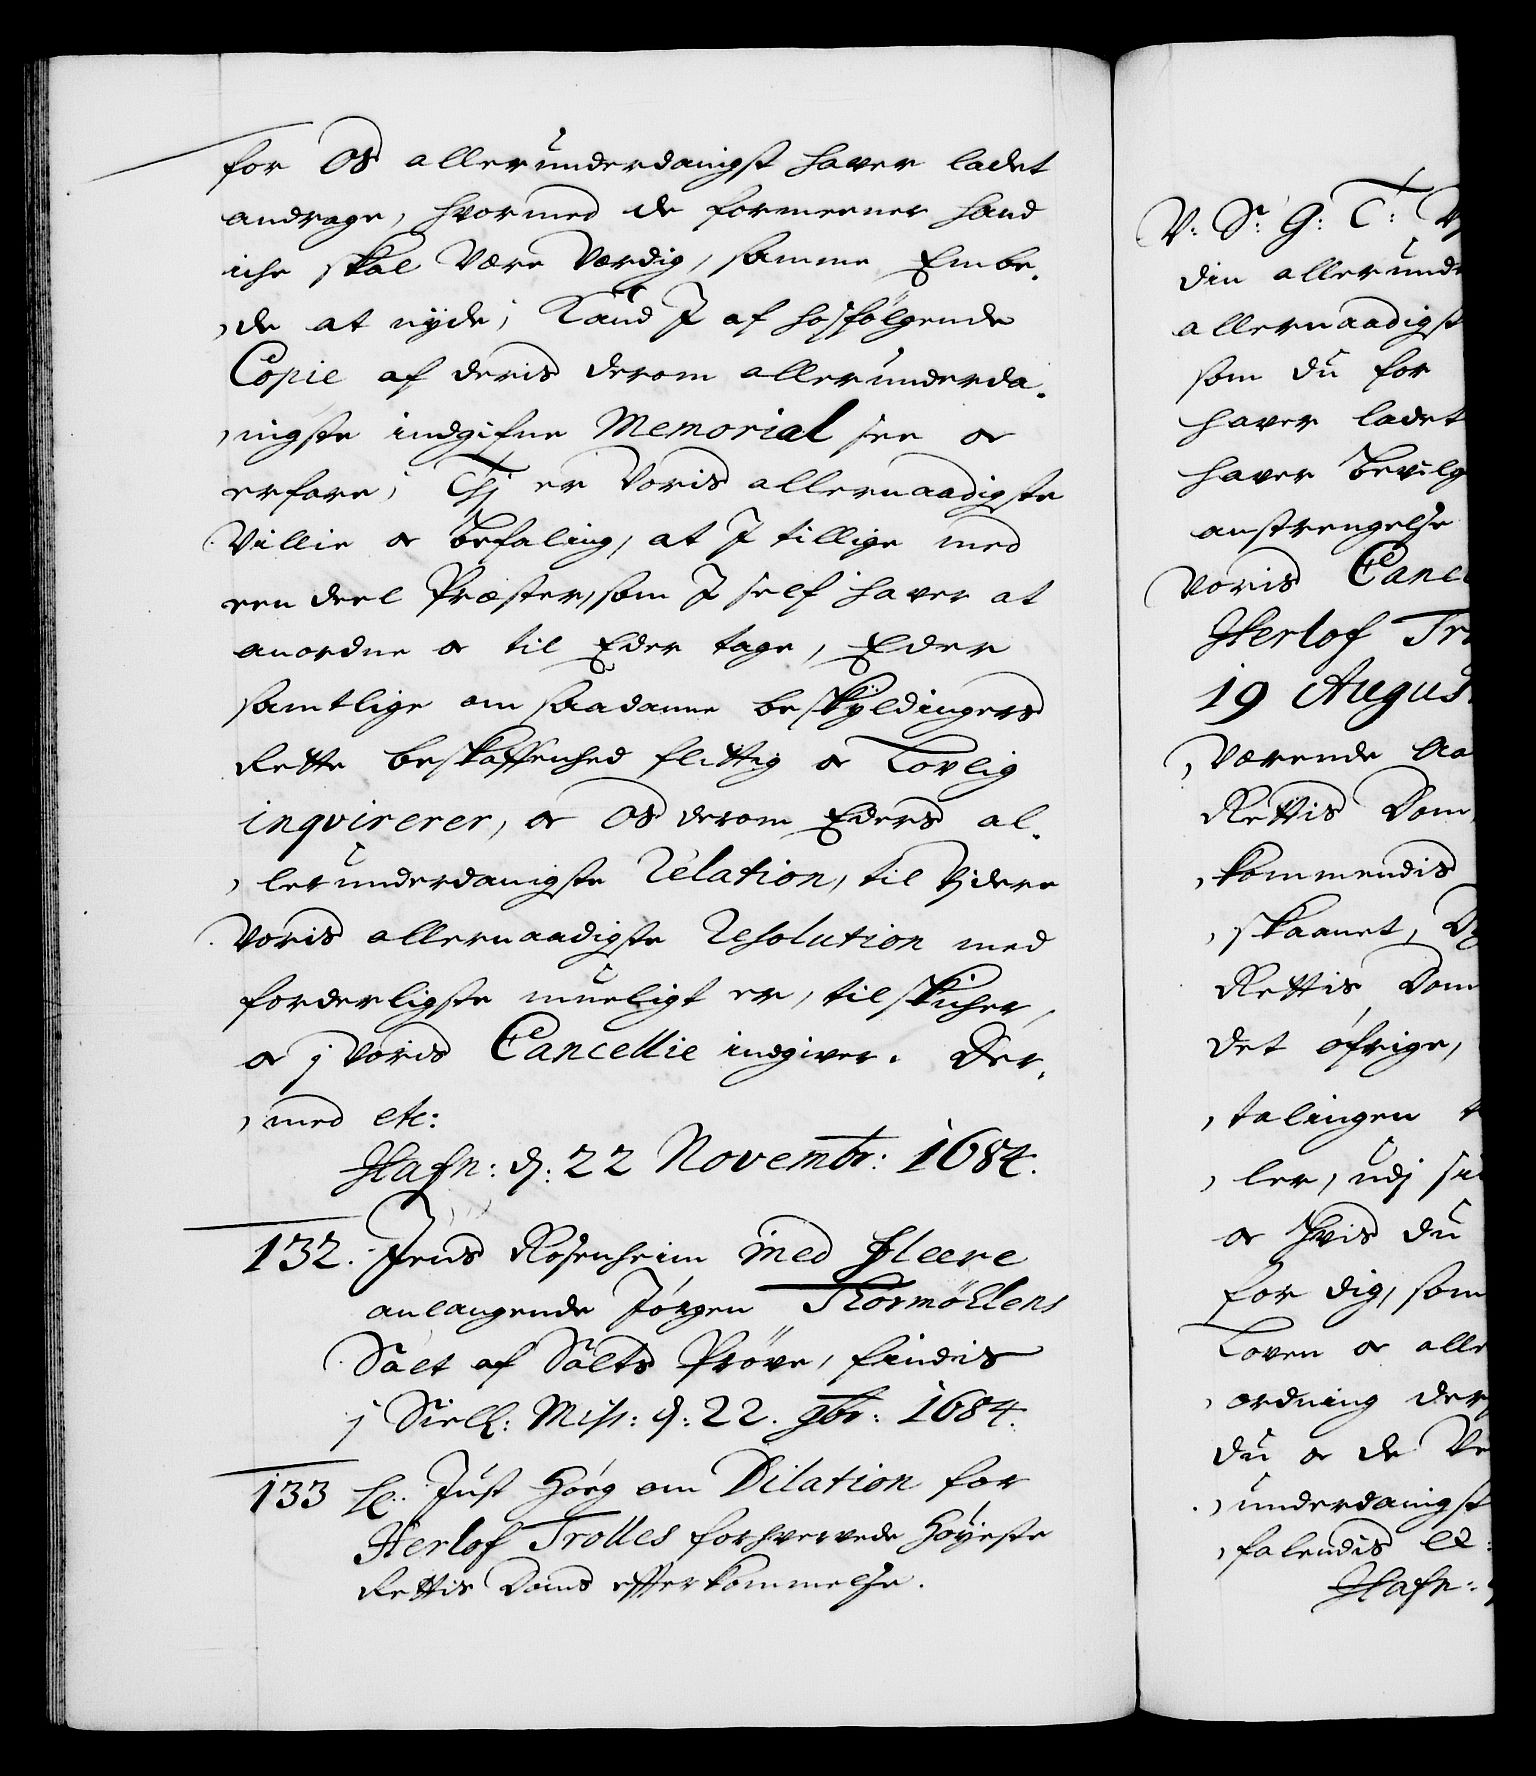 for Os allerunderdanigst hafver ladet
andrage, hvormed de formeener hand
iche skal være værdig, samme Embe-
de at nyde; Kand I af hosfølgende
Copie af deris derom allerunderda-
nigste indgifne Memorial see oc
erfare; Thj er Voris allernaadigste
Villie oc Befaling, at I tillige med
een deel Præster, som I self hafver at
anordne oc til Eder tage, Eder
samtlige om saadanne beskyldingers
Rette beskaffenhed flittig oc Lovlig
inqvirerer, oc Os derom Eders al-
lerunderdanigste Relation, til Vjdere
Voris allernaadigste Resolution med
forderligste mueligt er, tilskicher,
oc j Voris Cancellie indgiver. Der-
med etc:
Hafn: d: 22 Novembr: 1684.
132. Jens Rosenheim med fleere
anlangende Jørgen Thormøhlens
Salt af Salts Prøve, findis
j Siell: Miss: d: 22. 9br: 1684.
133 Hr. Just Høeg om Dilation for
Herlof Trolles forhvervede Høyeste
Rettis Doms efterkommelse.
V: S: G: T:
din allerunde
allernaadigst
som du for
hafver ladet
hafver bevilg
anstrengelse
Voris Canc
Herlof Tr
19 Augus
værende
Rettis Dom
kommendis
skaanet,
Rettis Dom
det øfrige,
talingen
ler, udj
oc hvis du
for dig, som
Loven oc alle
ordning der
du oc de Ve
underdanigst
falendis
Hafn: